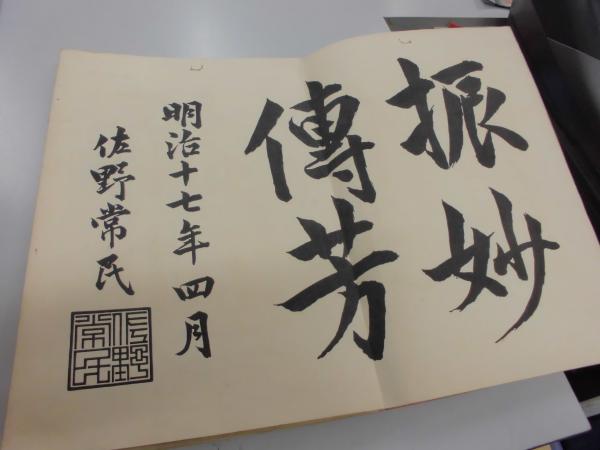 振妙
傳芳
明治十七年四月
佐野常民
佐野
常民